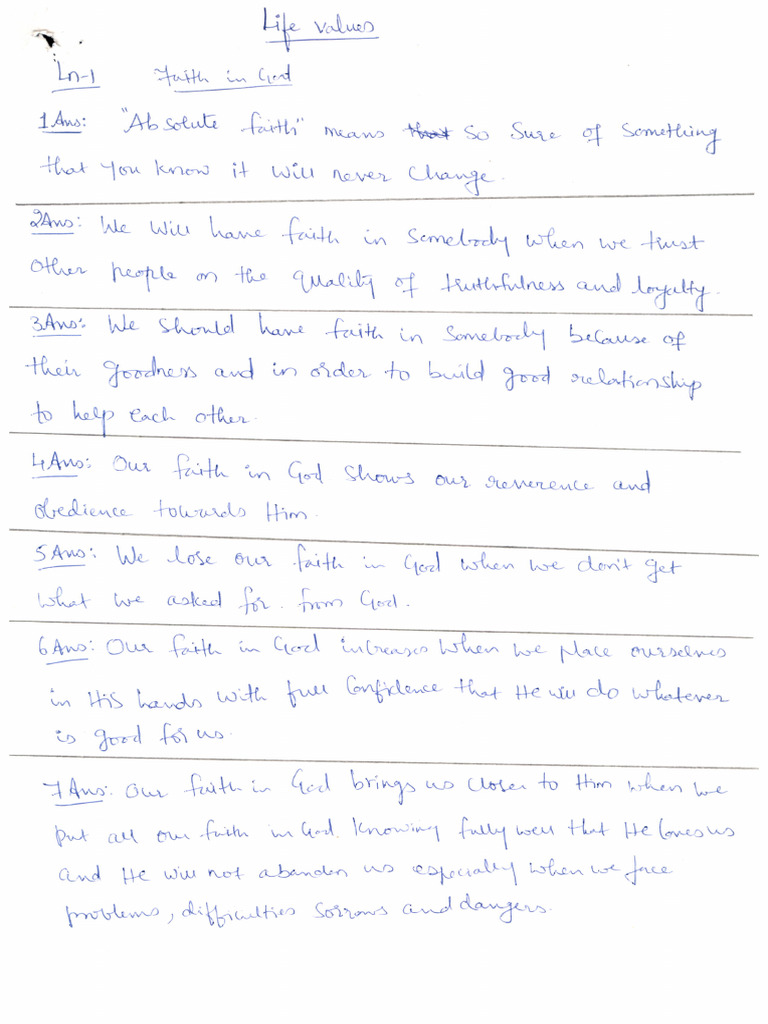 Life values
Ln-1 Faith in God
1Ans: "Absolute faith" means that so sure of something
that you know it will never change.
2Ans: We will have faith in somebody when we trust
other people on the quality of truthfulness and loyalty.
3Ans: We should have faith in somebody because of
their goodness and in order to build good relationship
to help each other.
4Ans: Our faith in God shows our reverence and
obedience towards Him.
5Ans: We lose our faith in God when we don't get
what we asked for from God.
6Ans: Our faith in God increases when we place ourselves
in His hands with full confidence that He will do whatever
is good for us.
7Ans: Our faith in God brings us closer to Him when we
put all our faith in God. Knowing fully well that He loves us
and He will not abandon us especially when we face
problems, difficulties sorrows and dangers.